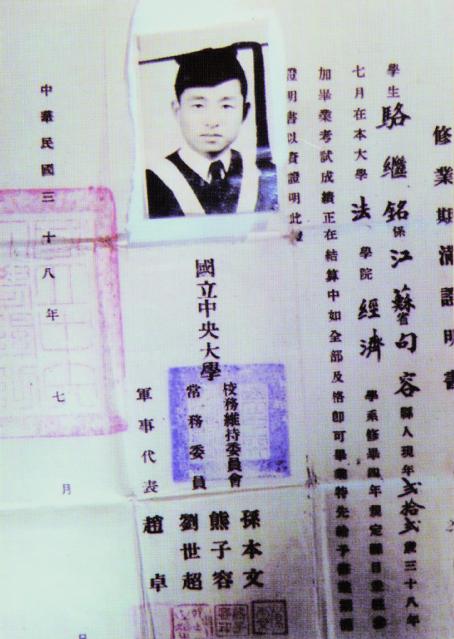 修業期滿證明書
學生駱繼銘係江蘇省句容縣人現年貳拾貳歲三十八年
七月在本大學法學院經濟學系修畢四年規定課目並經參
加畢業考試成績正在結算中如全部及格即可畢業特先給予修業期滿
證明書以資證明此證
國立中央大學
校務維持委員會
常務委員
孫本文
熊子容
劉世超
軍事代表
趙卓
中華民國三十八年七月 日